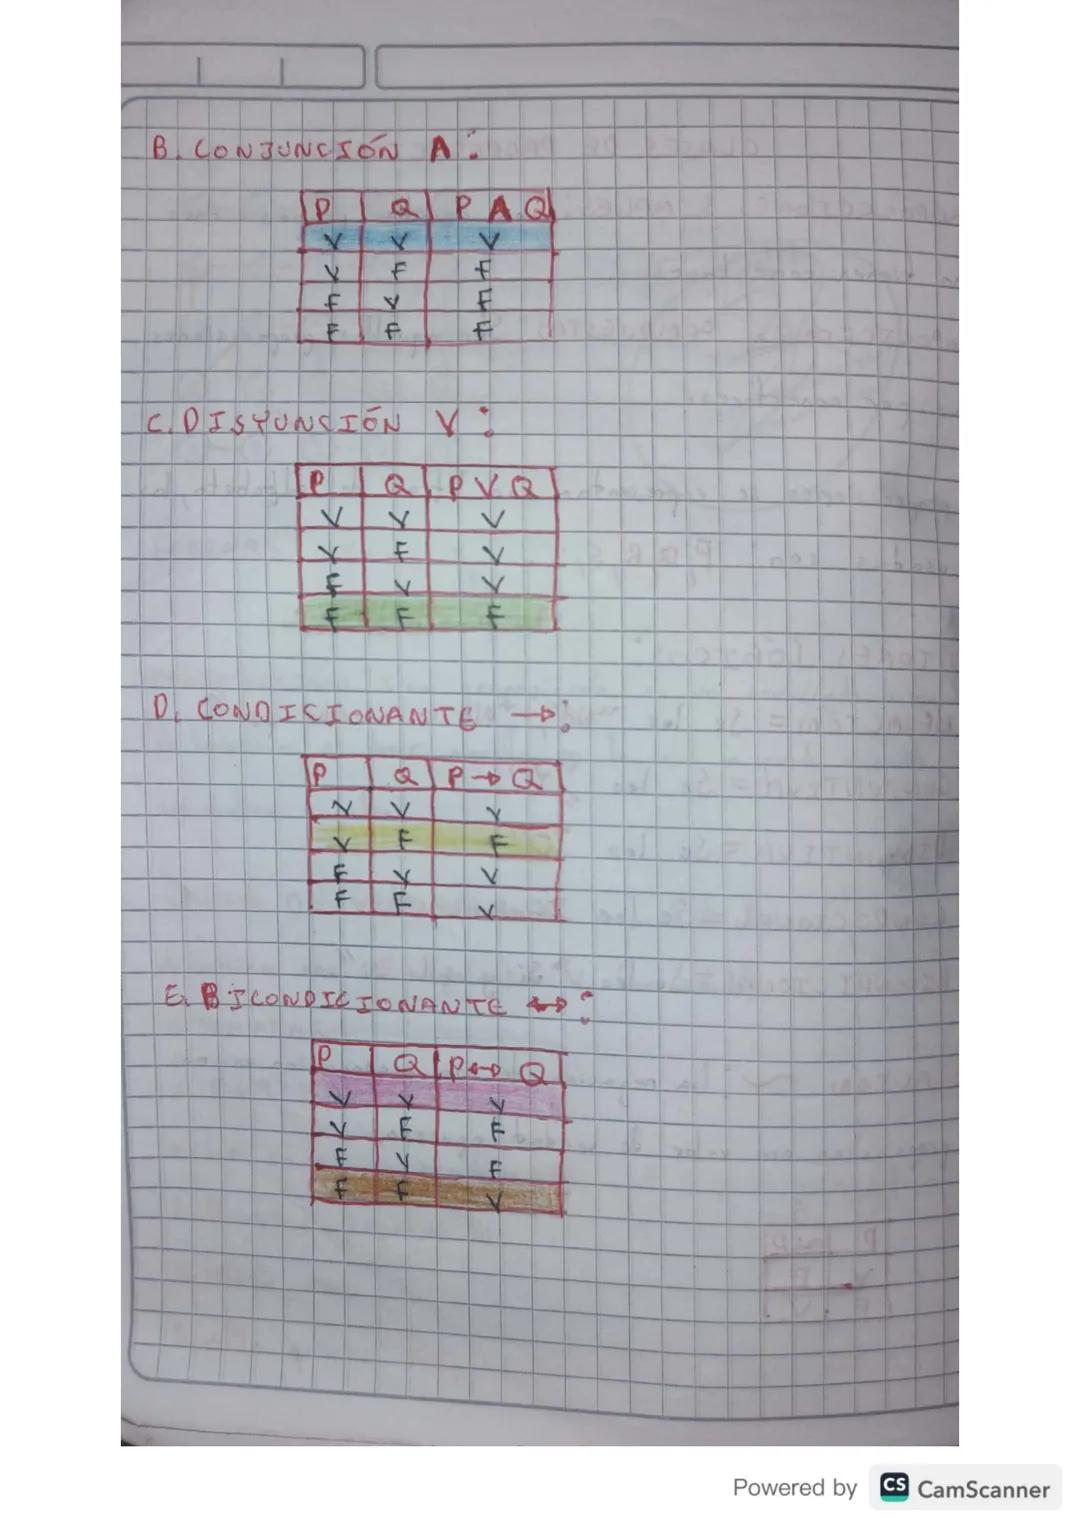 B. CONJUNCIÓN Λ:
P Q P Λ Q
V V V
V F F
F V F
F F F
C. DISYUNCIÓN V:
P Q P V Q
V V V
V F V
F V V
F F F
D. CONDICIONANTE →:
P Q P → Q
V V V
V F F
F V V
F F V
E. BICONDICIONANTE ↔:
P Q P ↔ Q
V V V
V F F
F V F
F F V
Powered by CS CamScanner